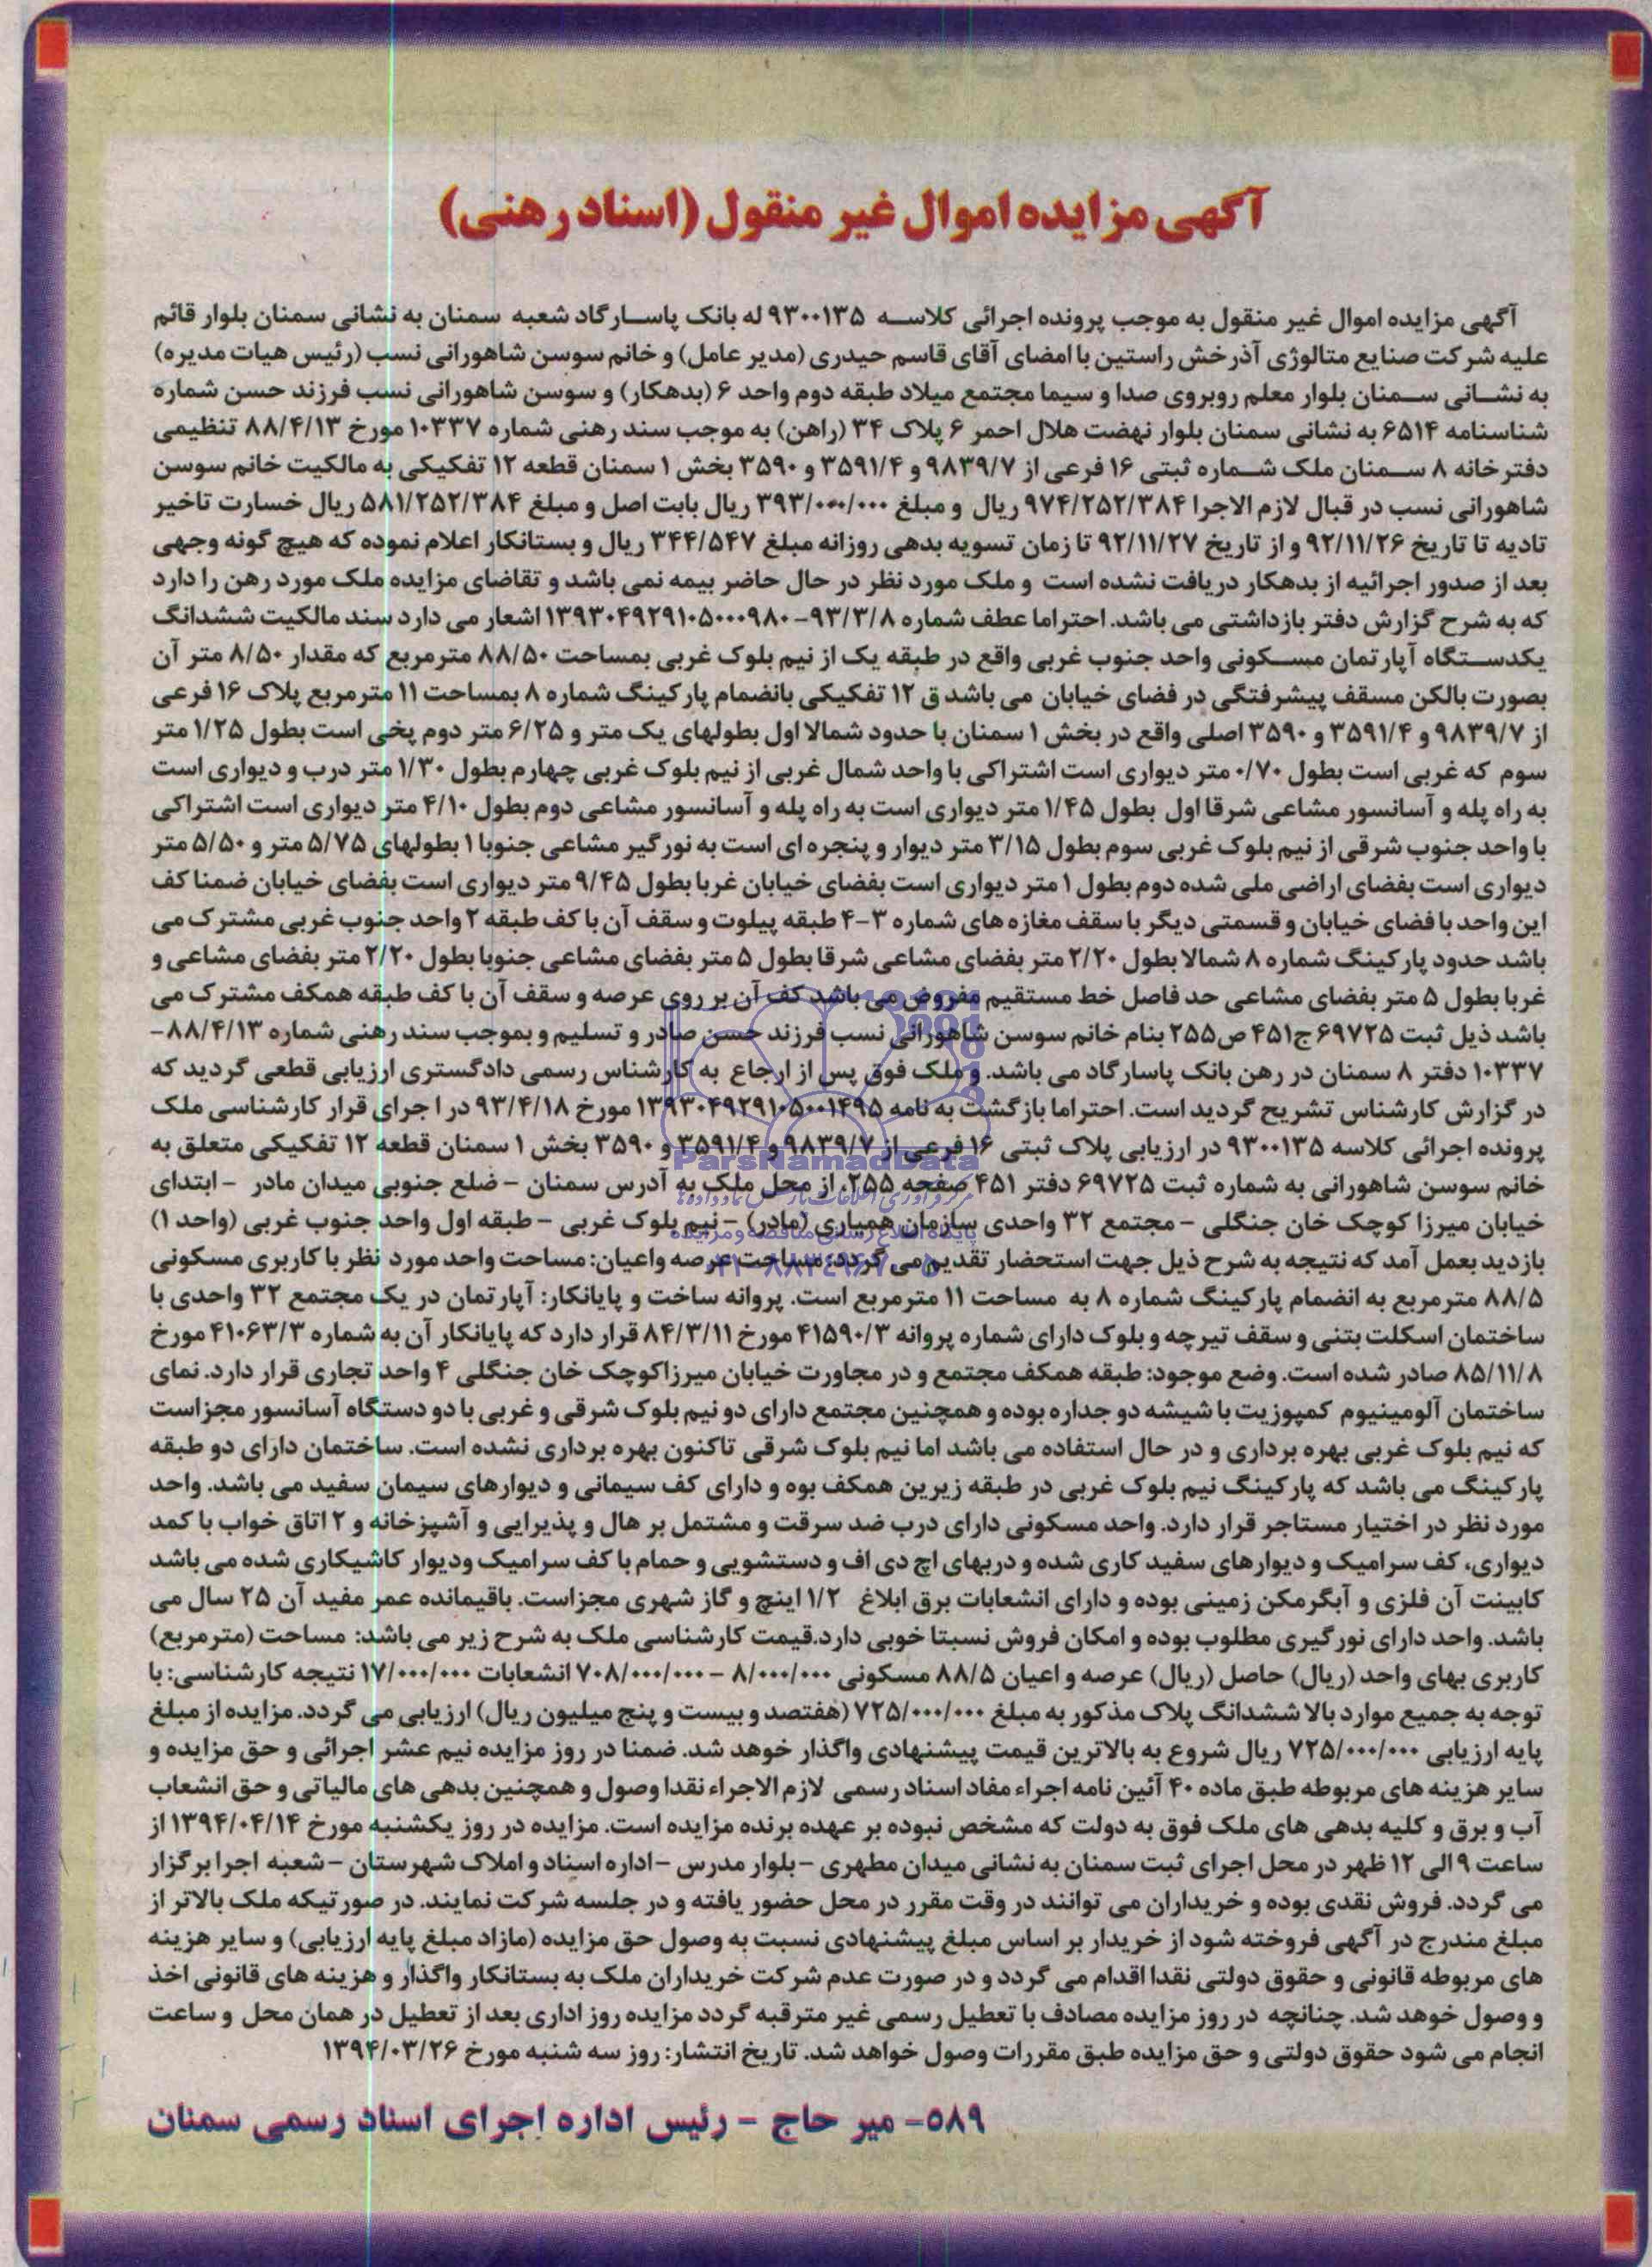 آگهی مزایده اموال غیر منقول (اسناد رهنی)
آگهی مزایده اموال غیر منقول به موجب پرونده اجرائی کلاسه ۹۳۰۰۱۳۵ له بانک پاسارگاد شعبه سمنان به نشانی سمنان بلوار قائم
علیه شرکت صنایع متالوژی آذرخش راستین با امضای آقای قاسم حیدری (مدیر عامل) و خانم سوسن شاهورانی نسب (رئیس هیات مدیره)
به نشانی سمنان بلوار معلم روبروی صدا و سیما مجتمع میلاد طبقه دوم واحد ۶ (بدهکار) و سوسن شاهورانی نسب فرزند حسن شماره
شناسنامه ۶۵۱۴ به نشانی سمنان بلوار نهضت هلال احمر ۶ پلاک ۳۴ (راهن) به موجب سند رهنی شماره ۱۰۳۳۷ مورخ ۸۸/۴/۱۳ تنظیمی
دفترخانه ۸ سمنان ملک شماره ثبتی ۱۶ فرعی از ۹۸۳۹/۷ و ۳۵۹۱/۴ و ۳۵۹۰ بخش ۱ سمنان قطعه ۱۲ تفکیکی به مالکیت خانم سوسن
شاهورانی نسب در قبال لازم الاجرا ۹۷۴/۲۵۲/۳۸۴ ریال و مبلغ ۳۹۳/۰۰۰/۰۰۰ ریال بابت اصل و مبلغ ۵۸۱/۲۵۲/۳۸۴ ریال خسارت تاخیر
تادیه تا تاریخ ۹۲/۱۱/۲۶ و از تاریخ ۹۲/۱۱/۲۷ تا زمان تسویه بدهی روزانه مبلغ ۳۴۴/۵۴۷ ریال و بستانکار اعلام نموده که هیچ گونه وجهی
بعد از صدور اجرائیه از بدهکار دریافت نشده است و ملک مورد نظر در حال حاضر بیمه نمی باشد و تقاضای مزایده ملک مورد رهن را دارد
که به شرح گزارش دفتر بازداشتی می باشد. احتراما عطف شماره ۹۳/۳/۸-۱۳۹۳۰۴۹۲۹۱۰۵۰۰۰۹۸۰ اشعار می دارد سند مالکیت ششدانگ
یکدستگاه آپارتمان مسکونی واحد جنوب غربی واقع در طبقه یک از نیم بلوک غربی بمساحت ۸۸/۵۰ مترمربع که مقدار ۸/۵۰ متر آن
بصورت بالکن مسقف پیشرفتگی در فضای خیابان می باشد ق ۱۲ تفکیکی بانضمام پارکینگ شماره ۸ بمساحت ۱۱ مترمربع پلاک ۱۶ فرعی
از ۹۸۳۹/۷ و ۳۵۹۱/۴ و ۳۵۹۰ اصلی واقع در بخش ۱ سمنان با حدود شمالا اول بطولهای یک متر و ۶/۲۵ متر دوم پخی است بطول ۱/۲۵ متر
سوم که غربی است بطول ۰/۷۰ متر دیواری است اشتراکی با واحد شمال غربی از نیم بلوک غربی چهارم بطول ۱/۳۰ متر درب و دیواری است
به راه پله و آسانسور مشاعی شرقا اول بطول ۱/۴۵ متر دیواری است به راه پله و آسانسور مشاعی دوم بطول ۴/۱۰ متر دیواری است اشتراکی
با واحد جنوب شرقی از نیم بلوک غربی سوم بطول ۳/۱۵ متر دیوار و پنجره ای است به نورگیر مشاعی جنوبا ۱ بطولهای ۵/۷۵ متر و ۵/۵۰ متر
دیواری است بفضای اراضی ملی شده دوم بطول ۱ متر دیواری است بفضای خیابان غربا بطول ۹/۴۵ متر دیواری است بفضای خیابان ضمنا کف
این واحد با فضای خیابان و قسمتی دیگر با سقف مغازه های شماره ۳-۴ طبقه پیلوت و سقف آن با کف طبقه ۲ واحد جنوب غربی مشترک می
باشد حدود پارکینگ شماره ۸ شمالا بطول ۲/۲۰ متر بفضای مشاعی شرقا بطول ۵ متر بفضای مشاعی جنوبا بطول ۲/۲۰ متر بفضای مشاعی و
غربا بطول ۵ متر بفضای مشاعی حد فاصل خط مستقیم مفروض می باشد کف آن بر روی عرصه و سقف آن با کف طبقه همکف مشترک می
باشد ذیل ثبت ۶۹۷۲۵ ج۴۵۱ ص۲۵۵ بنام خانم سوسن شاهورانی نسب فرزند حسن صادر و تسلیم و بموجب سند رهنی شماره ۸۸/۴/۱۳-
۱۰۳۳۷ دفتر ۸ سمنان در رهن بانک پاسارگاد می باشد. و ملک فوق پس از ارجاع به کارشناس رسمی دادگستری ارزیابی قطعی گردید که
در گزارش کارشناس تشریح گردید است. احتراما بازگشت به نامه ۱۳۹۳۰۴۹۲۹۱۰۵۰۰۱۴۹۵ مورخ ۹۳/۴/۱۸ در اجرای قرار کارشناسی ملک
پرونده اجرائی کلاسه ۹۳۰۰۱۳۵ در ارزیابی پلاک ثبتی ۱۶ فرعی از ۹۸۳۹/۷ و ۳۵۹۱/۴ و ۳۵۹۰ بخش ۱ سمنان قطعه ۱۲ تفکیکی متعلق به
ParsNamadData
خانم سوسن شاهورانی به شماره ثبت ۶۹۷۲۵ دفتر ۴۵۱ صفحه ۲۵۵، از محل ملک به آدرس سمنان - ضلع جنوبی میدان مادر - ابتدای
خیابان میرزا کوچک خان جنگلی - مجتمع ۳۲ واحدی سازمان همیاری (مادر) - نیم بلوک غربی - طبقه اول واحد جنوب غربی (واحد ۱)
پایگاه اطلاع رسانی مناقصه و مزایده
بازدید بعمل آمد که نتیجه به شرح ذیل جهت استحضار تقدیم می گردد: مساحت عرصه واعیان: مساحت واحد مورد نظر با کاربری مسکونی
۸۸/۵ مترمربع به انضمام پارکینگ شماره ۸ به مساحت ۱۱ مترمربع است. پروانه ساخت و پایانکار: آپارتمان در یک مجتمع ۳۲ واحدی با
ساختمان اسکلت بتنی و سقف تیرچه و بلوک دارای شماره پروانه ۴۱۵۹۰/۳ مورخ ۸۴/۳/۱۱ قرار دارد که پایانکار آن به شماره ۴۱۰۶۳/۳ مورخ
۸۵/۱۱/۸ صادر شده است. وضع موجود: طبقه همکف مجتمع و در مجاورت خیابان میرزاکوچک خان جنگلی ۴ واحد تجاری قرار دارد. نمای
ساختمان آلومینیوم کمپوزیت با شیشه دو جداره بوده و همچنین مجتمع دارای دو نیم بلوک شرقی و غربی با دو دستگاه آسانسور مجزاست
که نیم بلوک غربی بهره برداری و در حال استفاده می باشد اما نیم بلوک شرقی تاکنون بهره برداری نشده است. ساختمان دارای دو طبقه
پارکینگ می باشد که پارکینگ نیم بلوک غربی در طبقه زیرین همکف بوه و دارای کف سیمانی و دیوارهای سیمان سفید می باشد. واحد
مورد نظر در اختیار مستاجر قرار دارد. واحد مسکونی دارای درب ضد سرقت و مشتمل بر هال و پذیرایی و آشپزخانه و ۲ اتاق خواب با کمد
دیواری، کف سرامیک و دیوارهای سفید کاری شده و دربهای اچ دی اف و دستشویی و حمام با کف سرامیک ودیوار کاشیکاری شده می باشد
کابینت آن فلزی و آبگرمکن زمینی بوده و دارای انشعابات برق ابلاغ ۱/۲ اینچ و گاز شهری مجزاست. باقیمانده عمر مفید آن ۲۵ سال می
باشد. واحد دارای نورگیری مطلوب بوده و امکان فروش نسبتا خوبی دارد.قیمت کارشناسی ملک به شرح زیر می باشد: مساحت (مترمربع)
کاربری بهای واحد (ریال) حاصل (ریال) عرصه و اعیان ۸۸/۵ مسکونی ۸/۰۰۰/۰۰۰ - ۷۰۸/۰۰۰/۰۰۰ انشعابات ۱۷/۰۰۰/۰۰۰ نتیجه کارشناسی: با
توجه به جمیع موارد بالا ششدانگ پلاک مذکور به مبلغ ۷۲۵/۰۰۰/۰۰۰ (هفتصد و بیست و پنج میلیون ریال) ارزیابی می گردد. مزایده از مبلغ
پایه ارزیابی ۷۲۵/۰۰۰/۰۰۰ ریال شروع به بالاترین قیمت پیشنهادی واگذار خواهد شد. ضمنا در روز مزایده نیم عشر اجرائی و حق مزایده و
سایر هزینه های مربوطه طبق ماده ۴۰ آئین نامه اجراء مفاد اسناد رسمی لازم الاجراء نقدا وصول و همچنین بدهی های مالیاتی و حق انشعاب
آب و برق و کلیه بدهی های ملک فوق به دولت که مشخص نبوده بر عهده برنده مزایده است. مزایده در روز یکشنبه مورخ ۱۳۹۴/۰۴/۱۴ از
ساعت ۹ الی ۱۲ ظهر در محل اجرای ثبت سمنان به نشانی میدان مطهری -بلوار مدرس -اداره اسناد و املاک شهرستان -شعبه اجرا برگزار
می گردد. فروش نقدی بوده و خریداران می توانند در وقت مقرر در محل حضور یافته و در جلسه شرکت نمایند. در صورتیکه ملک بالاتر از
مبلغ مندرج در آگهی فروخته شود از خریدار بر اساس مبلغ پیشنهادی نسبت به وصول حق مزایده (مازاد مبلغ پایه ارزیابی) و سایر هزینه
های مربوطه قانونی و حقوق دولتی نقدا اقدام می گردد و در صورت عدم شرکت خریداران ملک به بستانکار واگذار و هزینه های قانونی اخذ
و وصول خواهد شد. چنانچه در روز مزایده مصادف با تعطیل رسمی غیر مترقبه گردد مزایده روز اداری بعد از تعطیل در همان محل و ساعت
انجام می شود حقوق دولتی و حق مزایده طبق مقررات وصول خواهد شد. تاریخ انتشار: روز سه شنبه مورخ ۱۳۹۴/۰۳/۲۶
۵۸۹- میر حاج - رئیس اداره اجرای اسناد رسمی سمنان